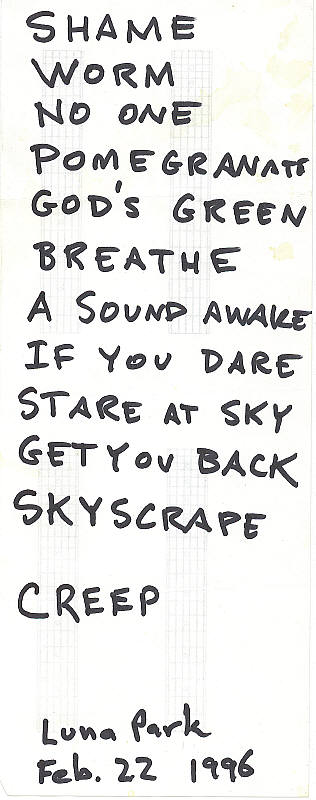 SHAME
WORM
NO ONE
POMEGRANATE
GOD'S GREEN
BREATHE
A SOUND AWAKE
IF YOU DARE
STARE AT SKY
GET YOU BACK
SKYSCRAPE
CREEP
Luna Park
Feb. 22 1996